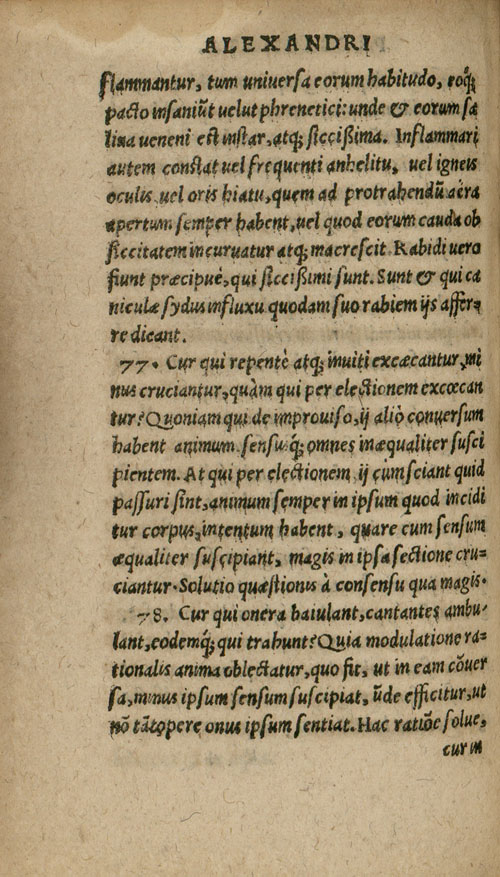 ALEXANDRI
flammantur, tum uniuersa eorum habitudo, eoq́;
pacto insaniũt uelut phrenetici: unde & eorum sa
liua ueneni est instar, atq; siccißima. Inflammari
autem constat uel frequenti anhelitu, uel igneis
oculis, uel oris hiatu, quem ad protrahendũ aëra
apertum semper habent, uel quod eorum cauda ob
siccitatem incuruatur atq; macrescit. Rabidi uero
fiunt præcipuè, qui siccißimi sunt. Sunt & qui ca
niculæ sydus influxu quodam suo rabiem ijs affer-
re dicant.
77. Cur qui repentè atq; inuiti excæcantur, mi
nus cruciantur, quàm qui per electionem excœcan
tur? Quoniam qui de improuiso, ij aliò conuersum
habent animum sensuq́; omnes inæqualiter susci
pientem. At qui per electionem ij cum sciant quid
passuri sint, animum semper in ipsum quod incidi
tur corpus, intentum habent, quare cum sensum
æqualiter suscipiant, magis in ipsa sectione cru-
ciantur. Solutio quæstionis à consensu qua magis.
78. Cur qui onera baiulant, cantantes ambu-
lant, eodemq́; qui trahunt? Quia modulatione ra-
tionalis anima oblectatur, quo fit, ut in eam cõuer
sa, minus ipsum sensum suscipiat, ũde efficitur, ut
nõ tãtopere onus ipsum sentiat. Hac ratiõe solue,
cur in